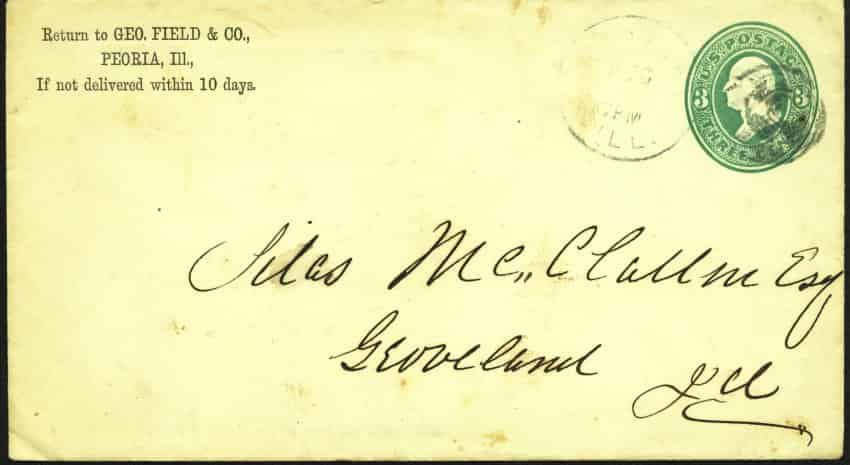 Return to GEO. FIELD & CO.,
PEORIA, Ill.,
If not delivered within 10 days.
U.S. POSTAGE
3 3
THREE
PM
ILL.
Silas Mc„Clallin Esq
Groveland
Ill